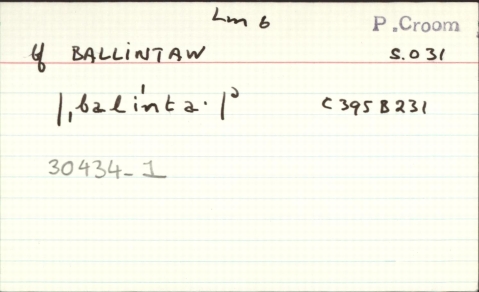 Lm 6
P.Croom
If BALLINTAW S.031
|ˌbalˈintaˑ|² C395B231
30434-1